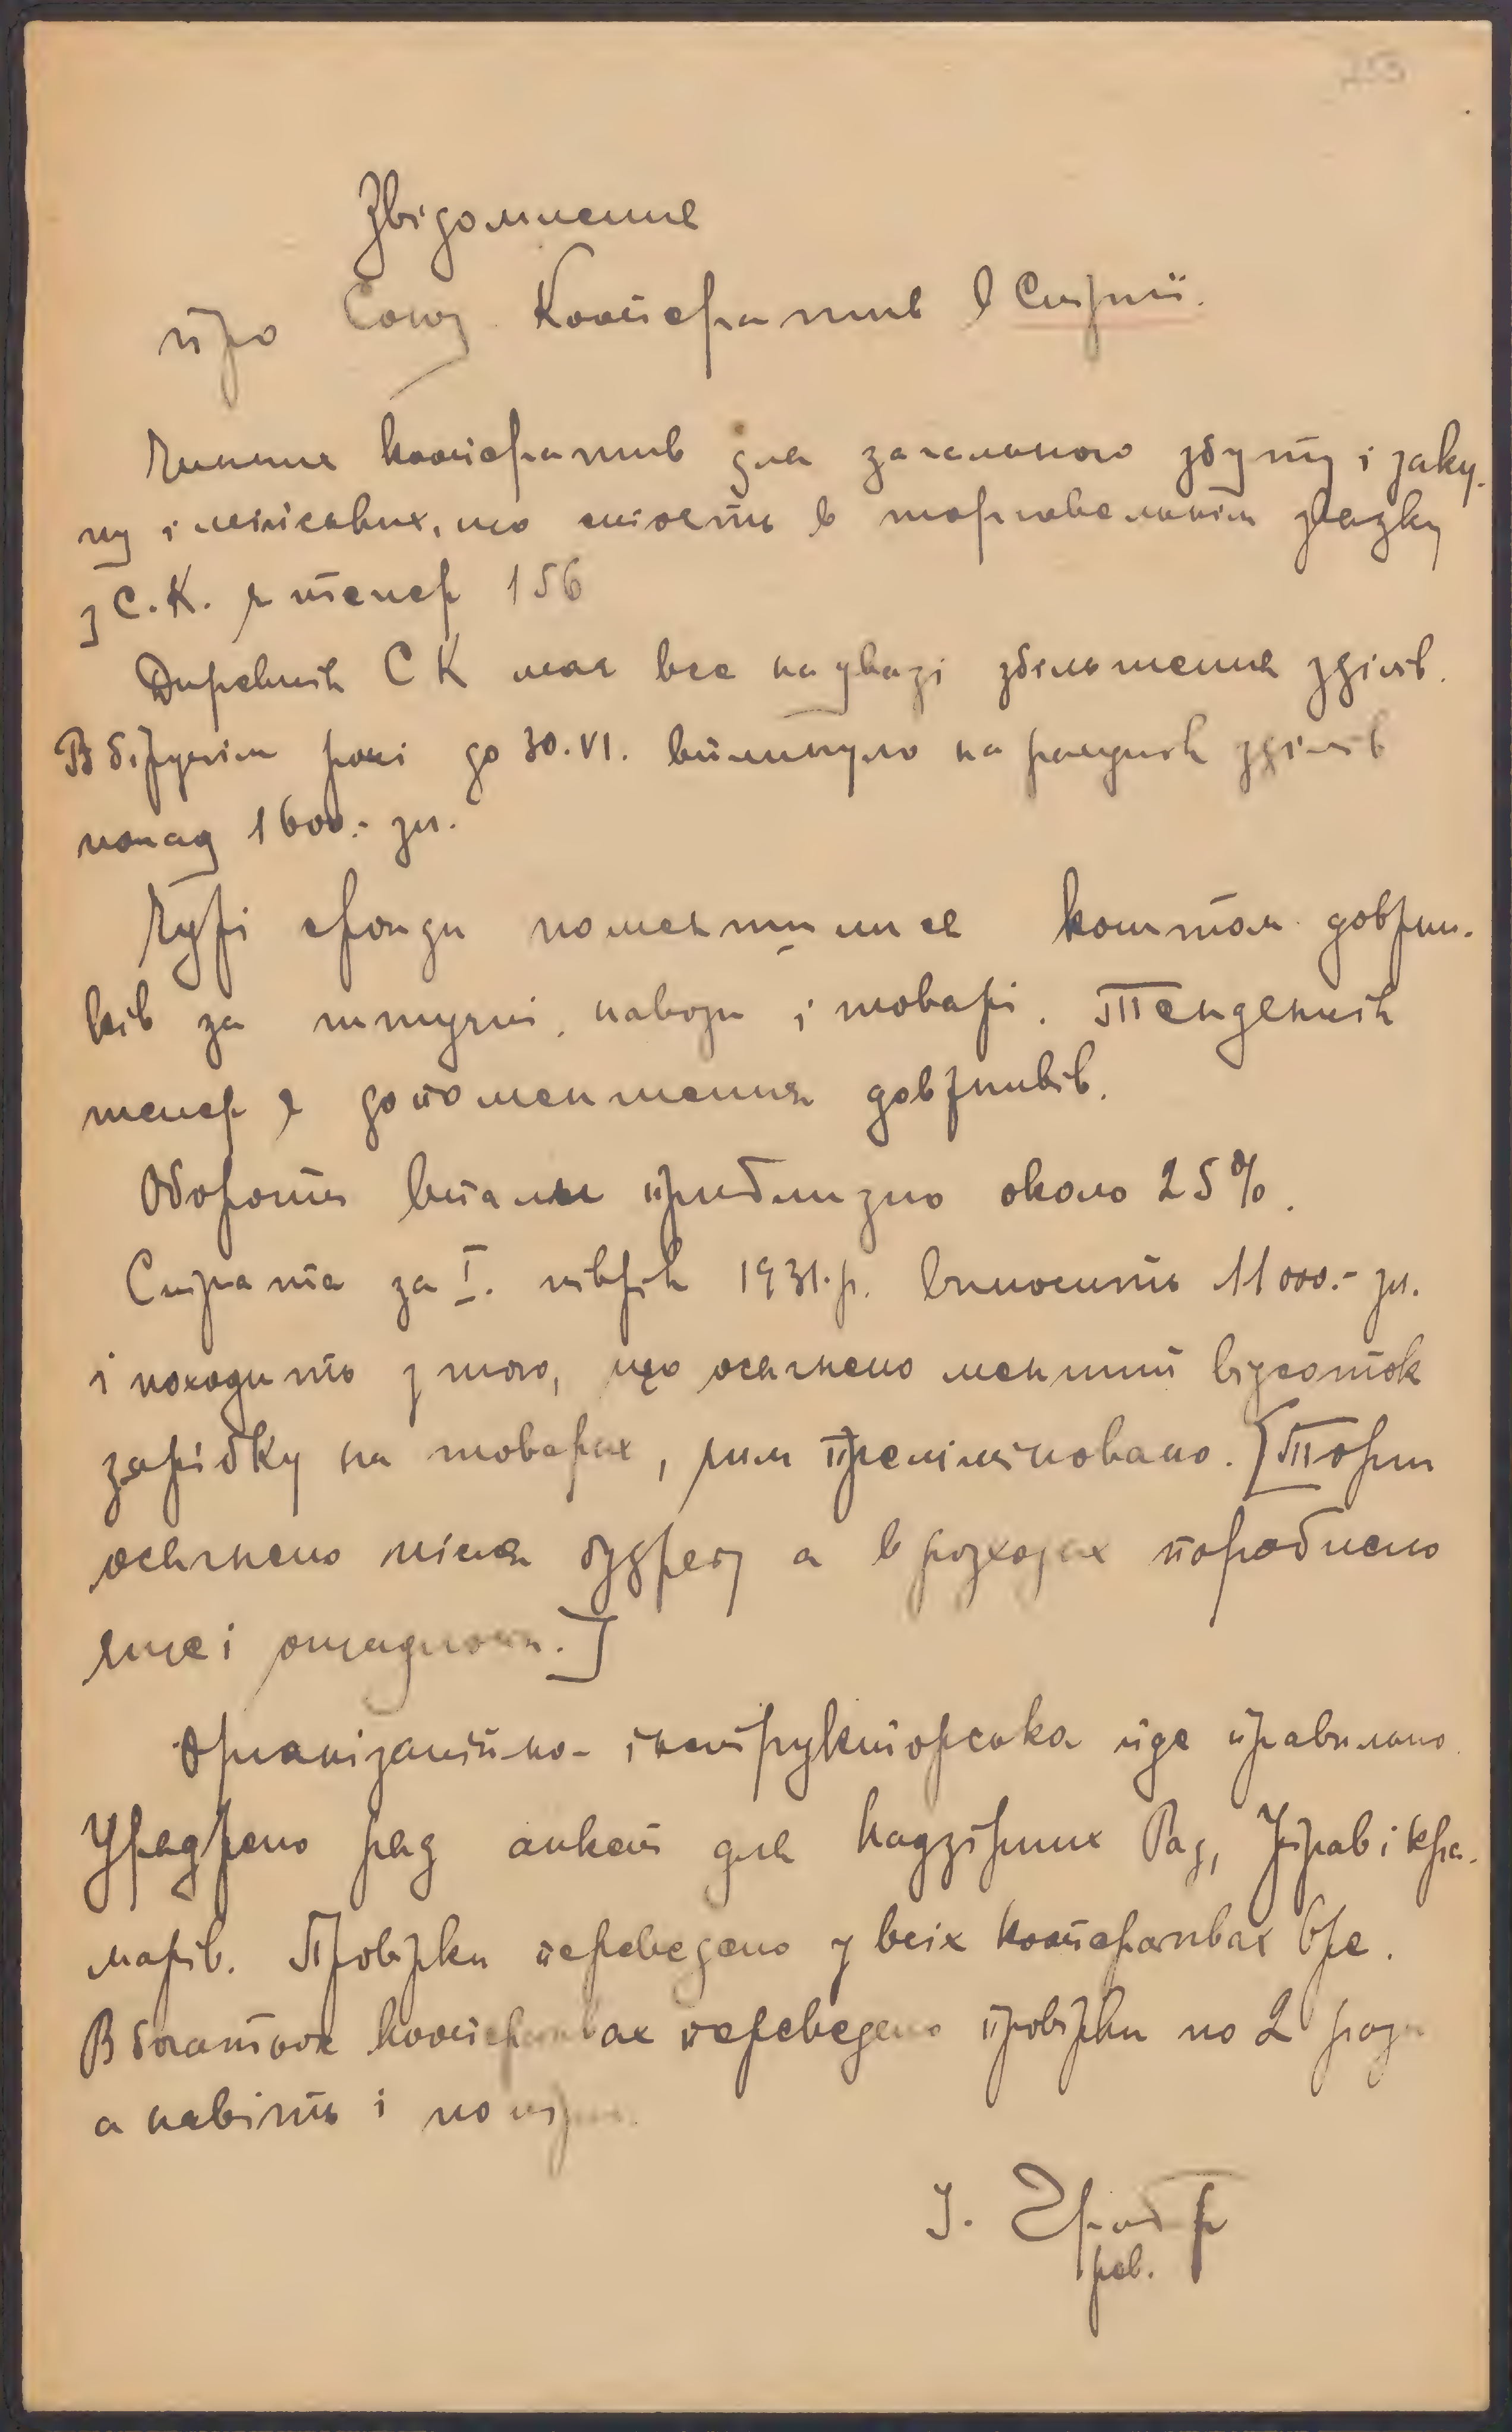 Звідомлення
про Союз Кооператив в Стрию.
Чинних кооператив для загального збуту і заку-
пу і міських, що стоять в торговельнім звязку
з С.К. є тепер 156
Дирекція СК має все на увазі збільшення уділів.
В біжучім році до 30.VI. вплинуло на рахунок уділів
понад 1600.- зл.
Чужі фонди поменшилися коштом довжни-
ків за штучні навози і товарі. Тенденція
тепер є до поменшення довжників.
Обороти впали приблизно около 25%.
Страта за I. півріч 1931.р. виносить 11000.- зл.
і походить з того, що осягнено менший відсоток
зарібку на товарах, чим прелімітовано. [Торги
осягнено після бюджету а в розходах пороблено
ще і ощадности.]
Організаційно-інструкторська йде правильно.
Уряджено ряд анкет для Надзірних Рад, Управ і кра-
марів. Провірки переведено у всіх кооперативах вже.
В богатьох кооперативах переведено провірки по 2 рази
а навіть і по три.
рев.